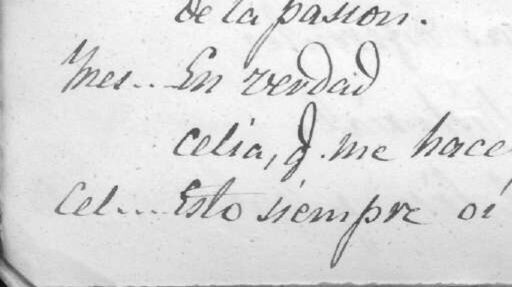 de la pasion.
Ynes.. En verdad
Celia, q. me hace
Cel... Esto siempre oi